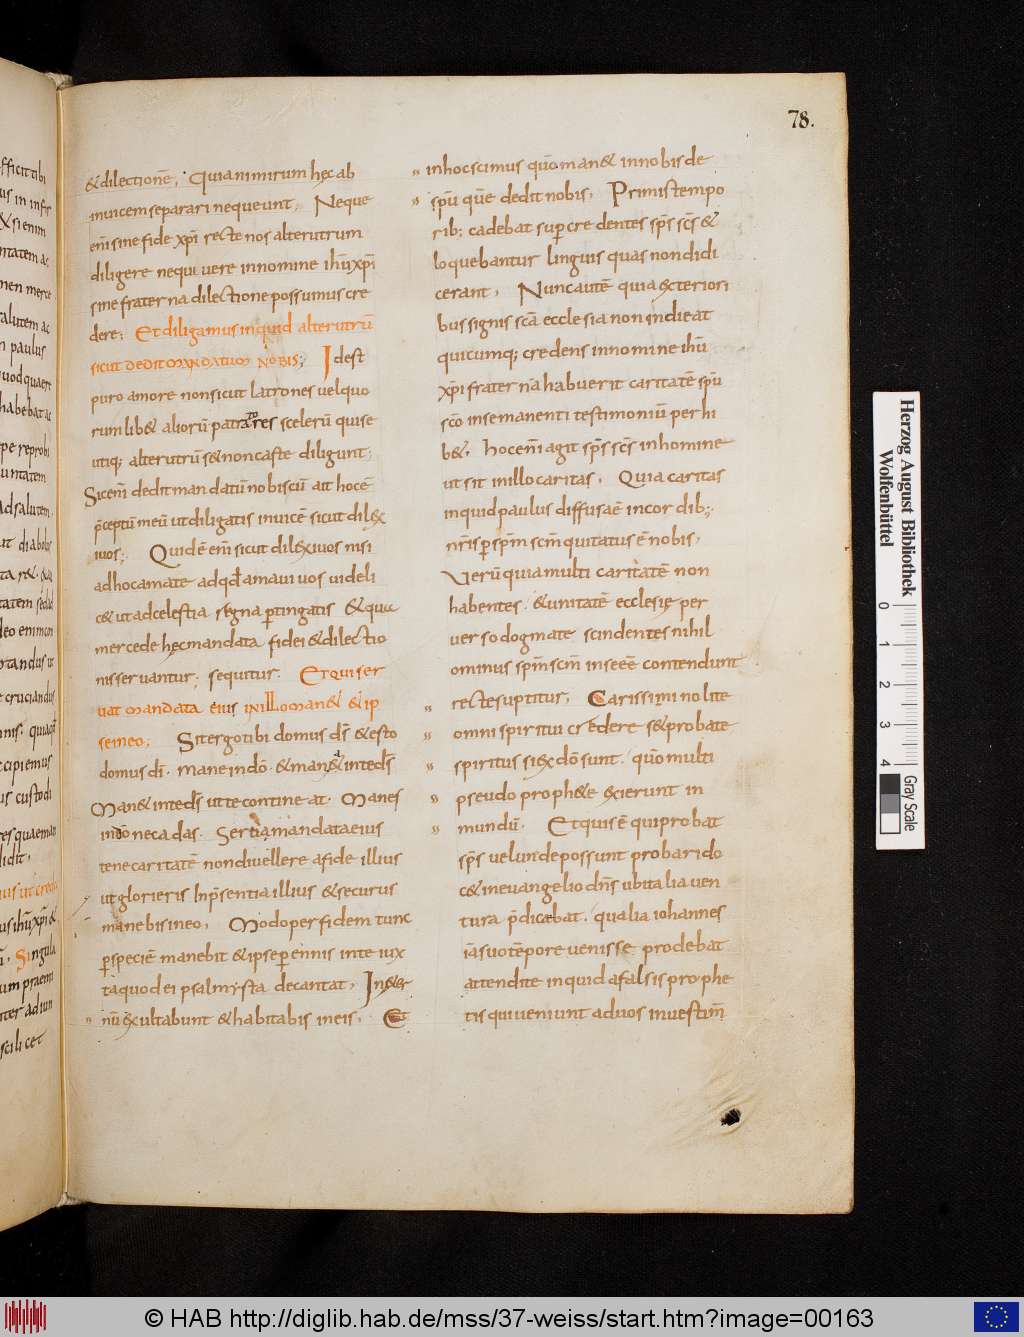 78.
& dilectionē, Quia nimirum hęc ab
inuicem separari nequeunt, Neque
enī sine fide xp̄i recte nos alterutrum
diligere nequi uere in nomine ihū xp̄i
sine fraterna dilectione possumus cre
dere; Et diligamus inquid alterutrū
sicut dedit mandatum nobis; Idest
puro amore non sicut latrones uel quo
rum lib& aliorū patratores scelerū qui se
utiq; alterutrū s& non caste diligunt;
Sicenī dedit mandatū nobis cū ait hoc ē
p̄ceptū meū ut diligatis inuicē sicut dilex
i uos; Quid ē enī sicut dilexi uos nisi
ad hoc amate ad qd̄ amaui uos uideli
c& ut ad celestia regna ꝑtingatis & qua
mercede hęc mandata fidei & dilectio
nis seruantur; sequitur. Et qui ser
uat mandata eius in illo man& & ip
se in eo; Sit ergo tibi domus dS̄ & esto
domus dī. mane in dō & man& in te dS̄
Man& in te dS̄ ut te contineat. Manes
in dō ne cadas. Serua mandata eius
tene caritatē non diuellere a fide illius
ut glorieris in p̄sentia illius & securus
manebis in eo, Modo per fidem tunc
ꝑ speciē manebit & ipse ꝑennis in te iux
ta quod ei psalmysta decantat, In &er
nū exultabunt & habitabis in eis, Et
in hoc scimus qūo man& in nobis de
sp̄u quē dedit nobis, Primis tempo
rib; cadebat sup credentes sp̄s scS̄ &
loquebantur linguis quas non didi
cerant, Nunc autē quia exteriori
bus signis scā ecclesia non indieat
quicumq; credens in nomine ihū
xp̄i fraterna habuerit caritatē sp̄u
scō in se manenti testimoniū perhi
b&, hoc enī agit sp̄s scS̄ in homine
ut sit in illo caritas, Quia caritas
inquid paulus diffusa ē in cordib;
nr̄is ꝑ sp̄m scm̄ qui tatus ē nobis,
Verū quia multi caritatē non
habentes. & unitatē ecclesię per
uerso dogmate scindentes nihil
ominus sp̄m scm̄ in se eē contendunt
recte suptitur, Carissimi nolite
omni spiritui credere s& probate
spiritus si ex dō sunt. qūo multi
pseudo proph&e exierunt in
mundū. Et quis ē qui probat
sp̄s uel unde possunt probari do
c& in euangelio dn̄s ubi talia uen
tura p̄dicebat. qualia iohannes
iā suo tēpore uenisse prodebat
attendite inquid a falsis prophe
tis qui ueniunt ad uos in uestim̄
Herzog August Bibliothek
Wolfenbüttel
0 1 2 3 4
Gray Scale
© HAB http://diglib.hab.de/mss/37-weiss/start.htm?image=00163